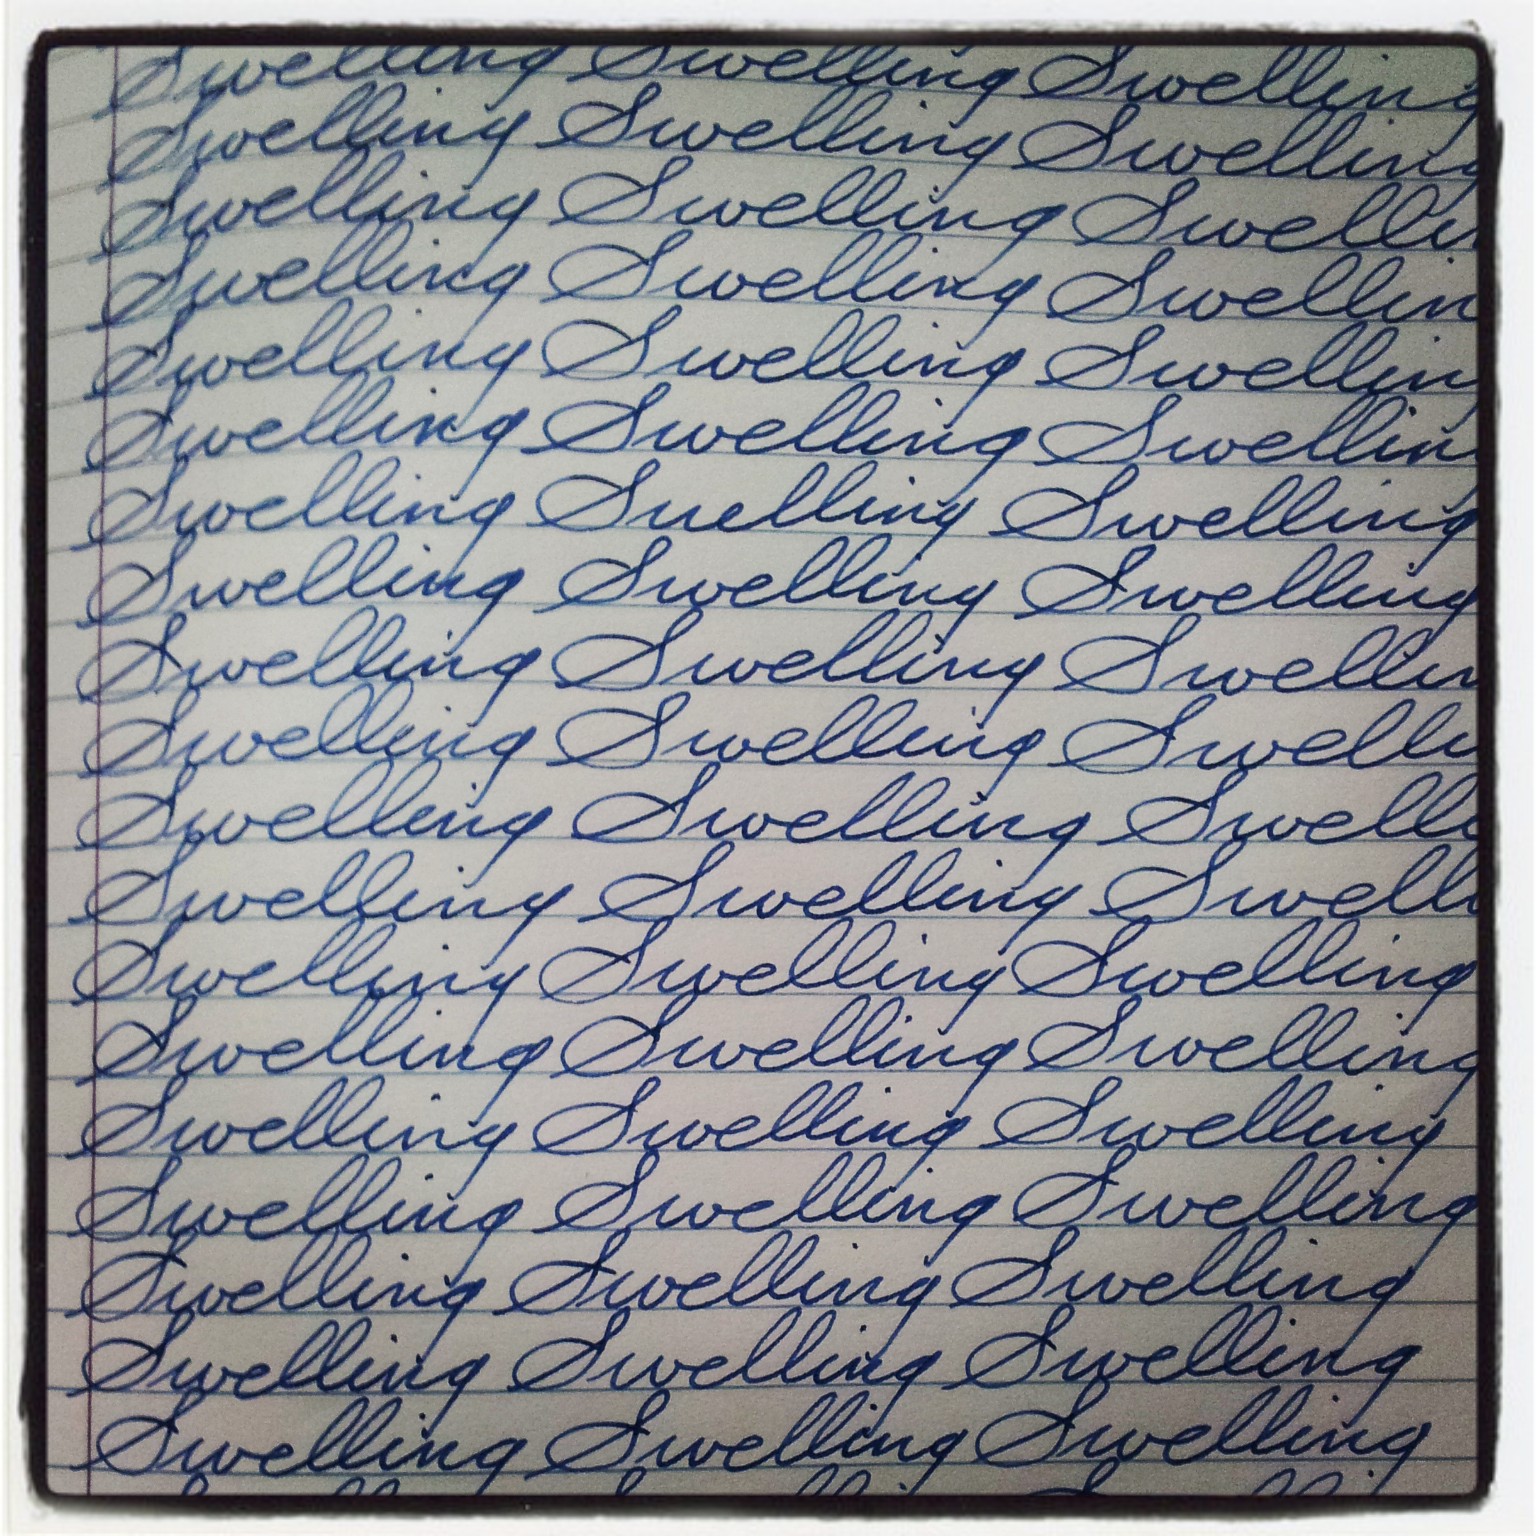 Swelling Swelling Swelling
Swelling Swelling Swelling
Swelling Swelling Swelli
Swelling Swelling Swellin
Swelling Swelling Swellin
Swelling Swelling Swellin
Swelling Suelling Swelling
Swelling Swelling Swelling
Swelling Swelling Swellin
Swelling Swelling Swelli
Swelling Swelling Swelli
Swelling Swelling Swelli
Swelling Swelling Swelling
Swelling Swelling Swelling
Swelling Swelling Swelling
Swelling Swelling Swelling
Swelling Swelling Swelling
Swelling Swelling Swelling
Swelling Swelling Swelling